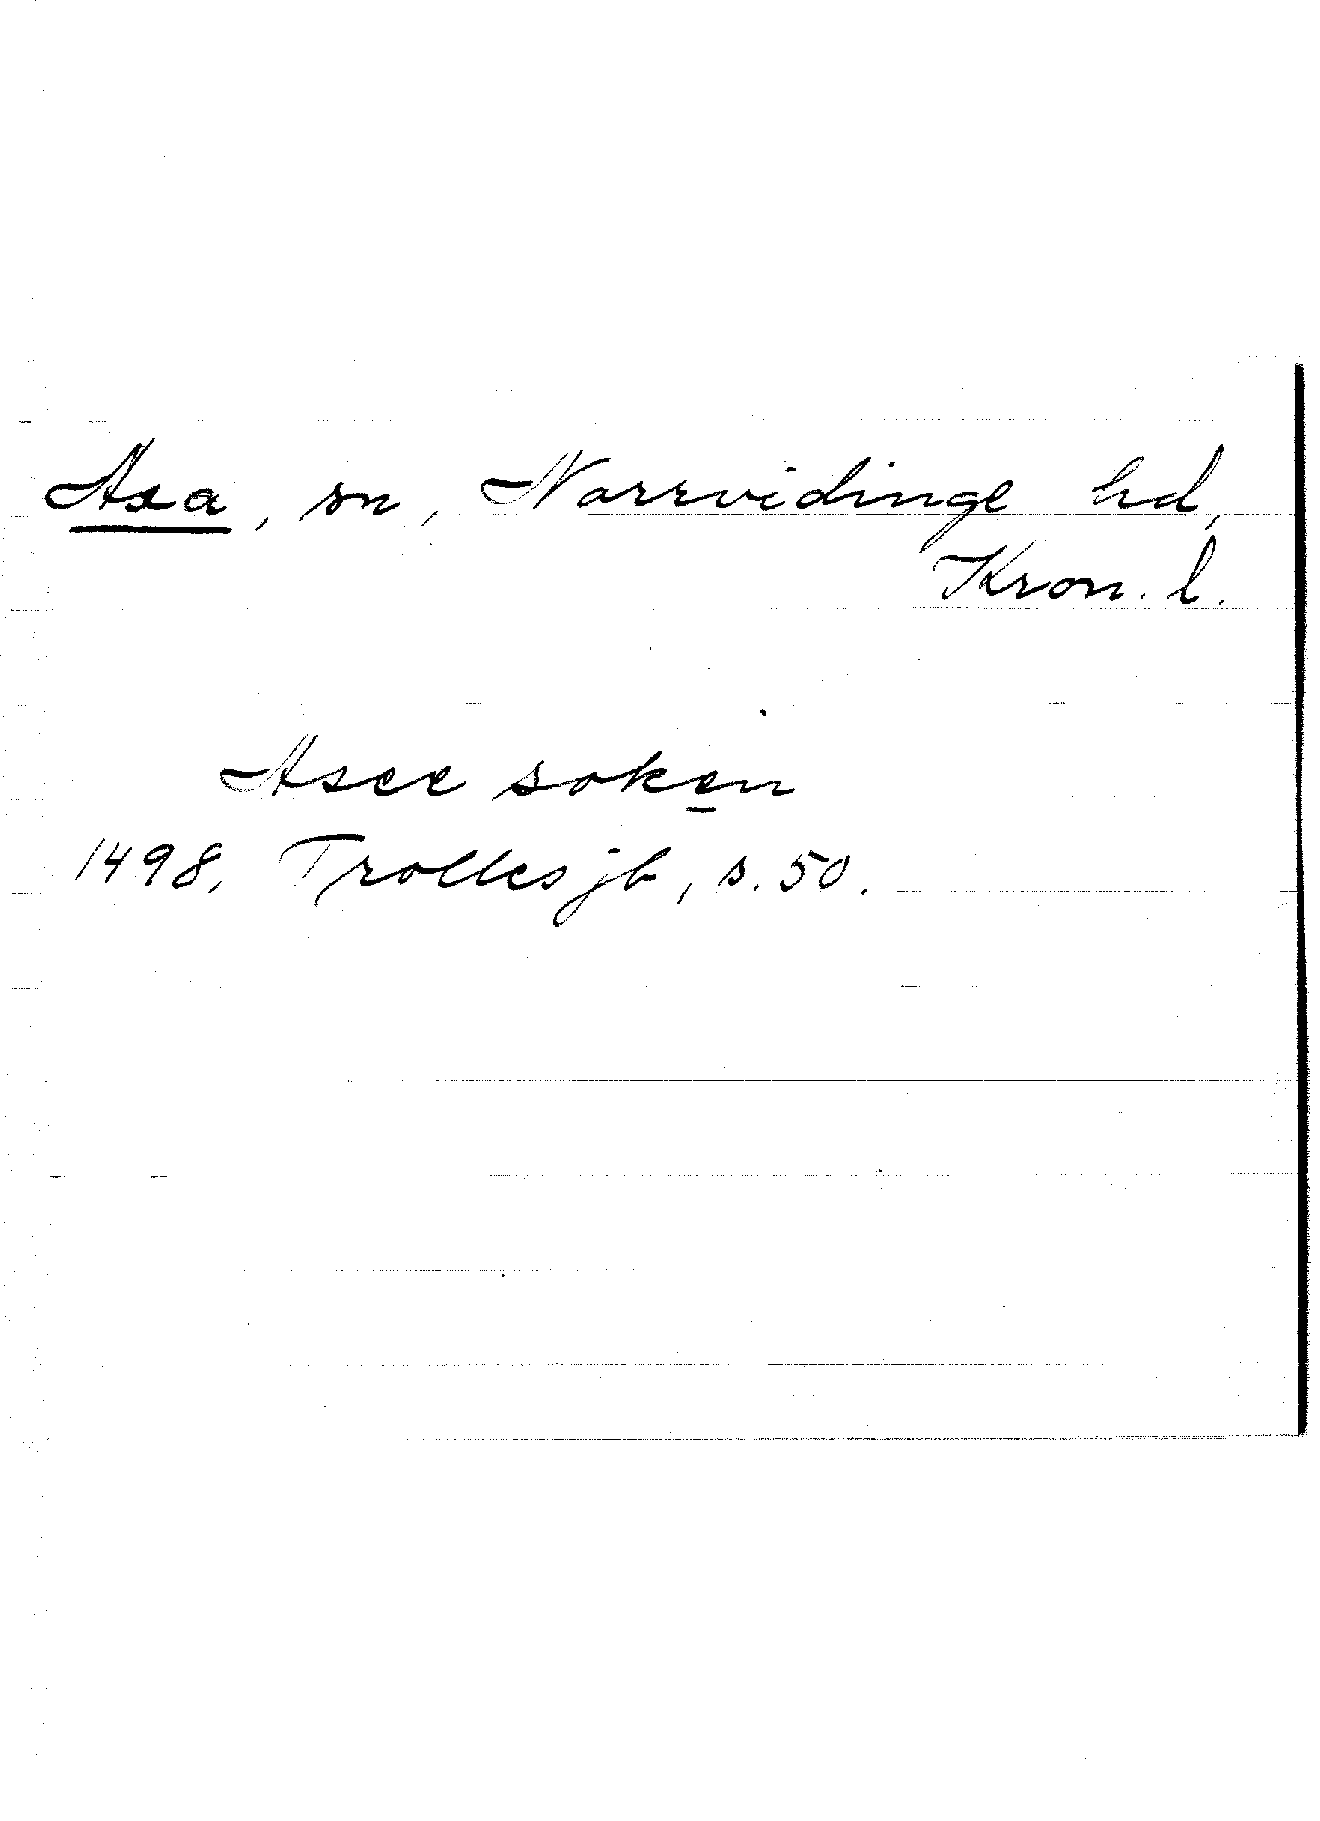 Asa, sn, Norrvidinge hd,
Kron. l.
Asee soken
1498, Trolles jb, s. 50.